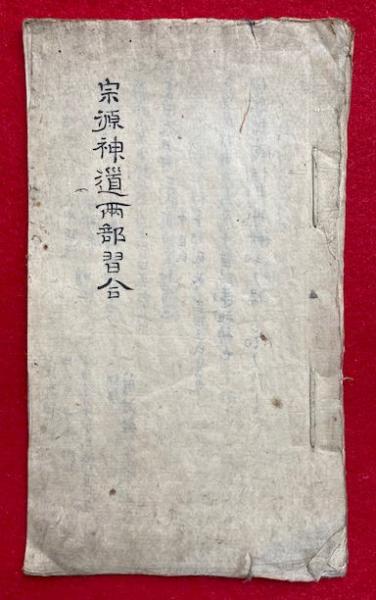 宗源神道両部習合